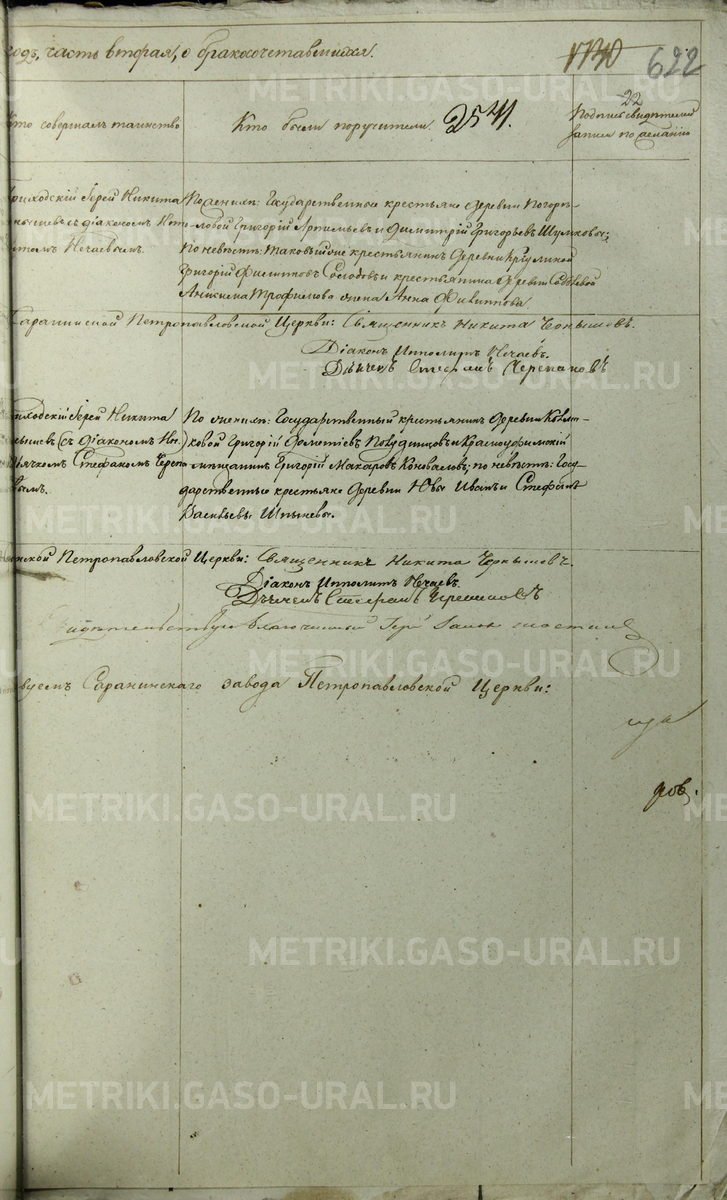 годъ, часть вторая, о бракосочетавшихся.
1730 622
Кто совершалъ таинство
Кто были поручители. 2541.
22
Подпись свидѣтелей
записи по желанію
Приходскій Іерей Никита
съ діакономъ Иппо-
литомъ Нечаевымъ.
По женихѣ: Государственные крестьяне деревни Погорѣ-
ловой Григорій Артемьевъ и Димитрій Григорьевъ Шуляковы;
по невѣстѣ: таковый же крестьянинъ деревни
Григорій Филиповъ Соловьевъ и крестьянина деревни
Анисима Трофимова жена Анна Филиппова
Саранинской Петропавловской Церкви: Священникъ Никита Чернышовъ.
Діаконъ Ипполитъ Нечаевъ.
Дьячекъ Стефанъ Черепановъ
Приходскій Іерей Никита
Чернышевъ (съ діакономъ Не.)
Дьячкомъ Стефаномъ Черепа-
новымъ.
По женихѣ: Государственный крестьянинъ деревни
ковой Григорій Дометіевъ и Красноуфимскій
мѣщанинъ Григорій Макаровъ Коноваловъ; по невѣстѣ: Госу-
дарственные крестьяне деревни Ювы Иванъ и Стефанъ
Васильевы Шпыневы.
Саранинской Петропавловской Церкви: Священникъ Никита Чернышовъ.
Діаконъ Ипполитъ Нечаевъ.
Дьячекъ Стефанъ Черепановъ
Свидѣтельствую Благочинный Іерей
вуемъ Саранинскаго завода Петропавловской Церкви:
METRIKI.GASO-URAL.RU